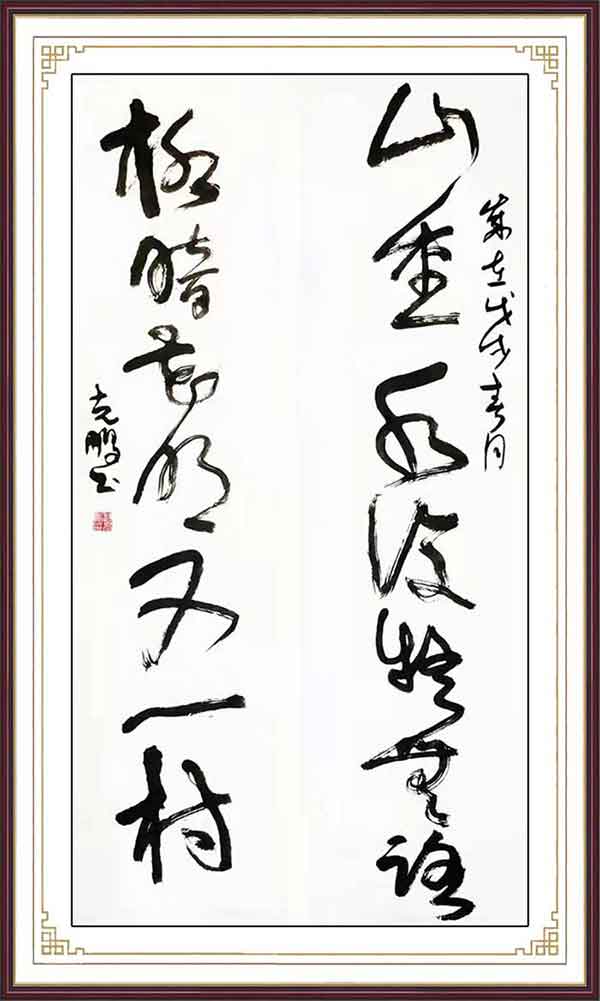 歲在戊戌春月
山重水復疑無路
柳暗花明又一村
克鵬书